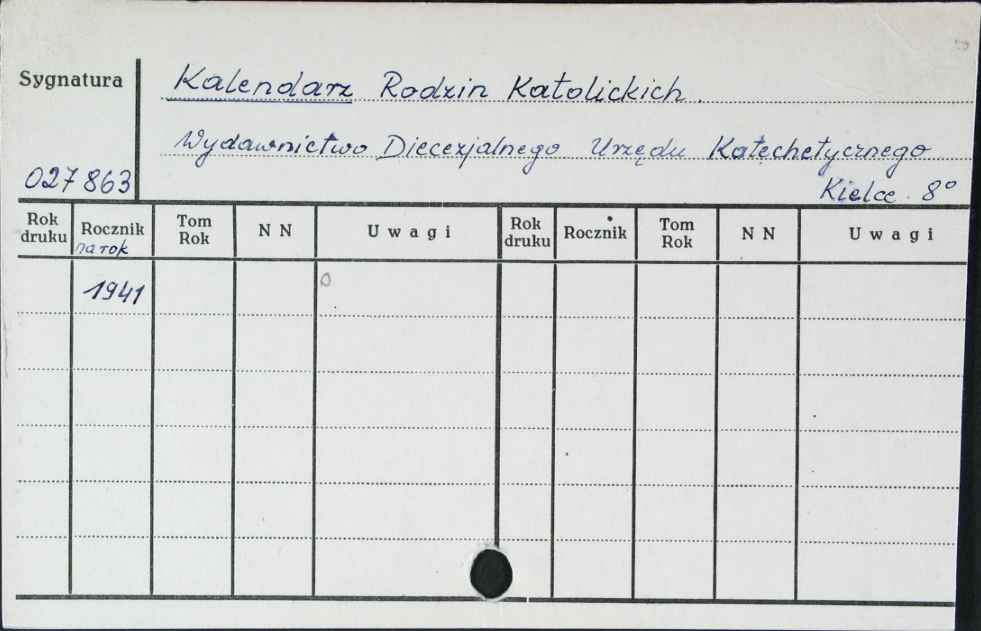 Sygnatura
Kalendarz Rodzin Katolickich.
Wydawnictwo Diecezjalnego Urzędu Katechetycznego
027863
Kielce. 8°
Rok druku Rocznik na rok Tom Rok N N Uwagi Rok druku Rocznik Tom Rok N N Uwagi
1941